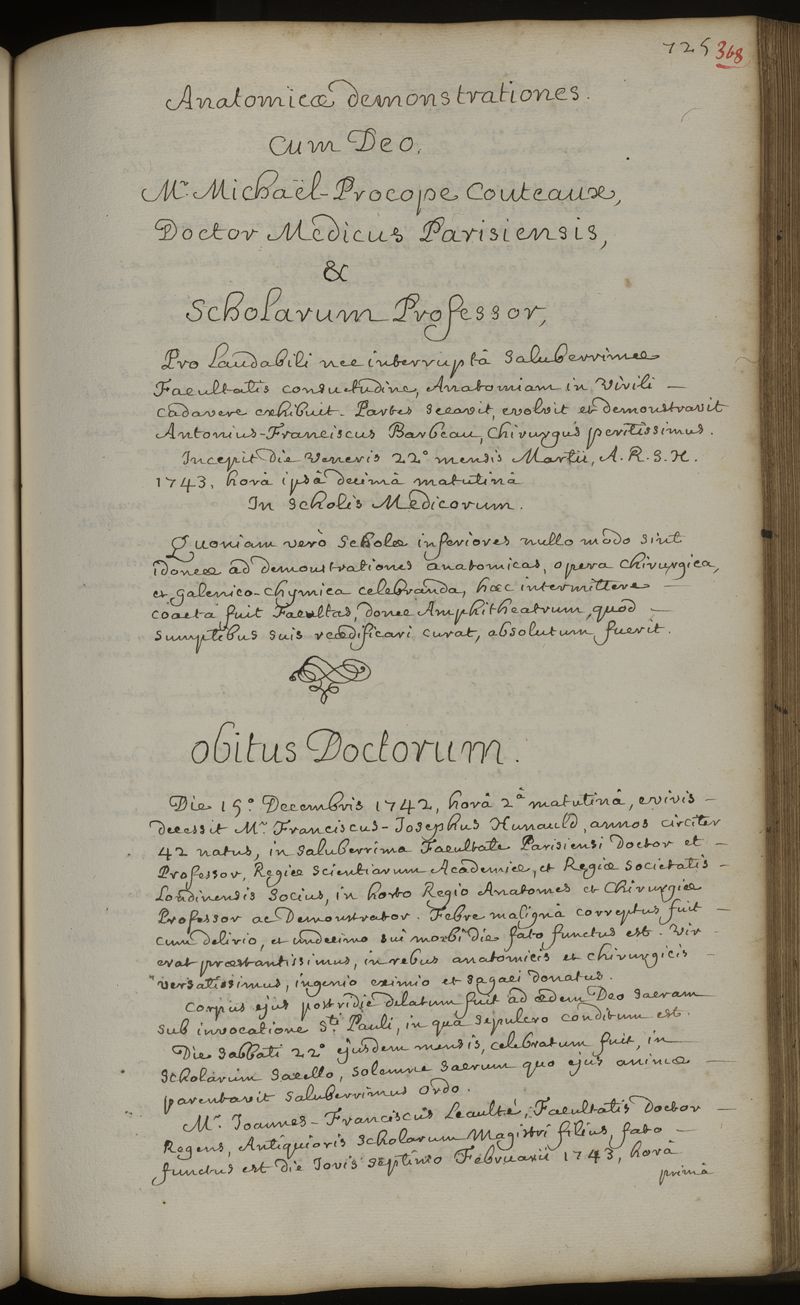 725 368
Anatomicæ demonstrationes.
Cum Deo,
Mr. Michaël-Procope Couteaux,
Doctor Medicus Parisiensis,
&
Scholarum Professor,
Pro Laudabili nec interruptâ Saluberrimæ
Facultatis consuetudine, Anatomiam in Virili —
cadavere exhibuit. Partes secavit, evolvit et demonstravit
Antonius-Franciscus Barbeau, Chirurgus peritissimus.
Incepit die Veneris 22º mensis Martii, A. R. S. H.
1743, horâ ipsâ decimâ matutinâ
In Scholis Medicorum.
Quoniam verò Scholæ inferiores nullo modo sint
idoneæ ad demonstrationes anatomicas, opera Chirurgica,
et galenico-chymica celebranda, hæc intermittere —
coacta fuit Facultas, donec Amphitheatrum, quod —
sumptibus suis reædificari curat, absolutum fuerit.
obitus Doctorum.
Die 15º. Decembris 1742, horâ 2â matutinâ, e vivis —
decessit Mr. Franciscus-Josephus Hunauld, annos circiter
42 natus, in saluberrima Facultate Parisiensi Doctor et —
Professor, Regiæ Scientiarum Academiæ, et Regiæ Societatis —
Londinensis Socius, in horto Regio Anatomes et Chirurgiæ
Professor ac Demonstrator. Febre malignâ correptus fuit —
cum delirio, et undecimo sui morbi die fato functus est. Vir
erat præstantissimus, in rebus anatomicis et chirurgicis —
versatissimus, ingenio eximio et sagaci donatus.
Corpus ejus postridie delatum fuit ad ædem Deo sacram
sub invocatione Sti. Pauli, in quâ sepulcro conditum est.
Die sabbati 22º ejusdem mensis, celebratum fuit, in
Scholarum Sacello, solemne sacrum quo ejus animæ —
parentavit saluberrimus ordo.
Mr. Joannes-Franciscus Leaulté, Facultatis Doctor —
Regens, Antiquioris Scholarum Magistri filius, fato —
functus est die Jovis septimo Februarii 1743, horâ
primâ